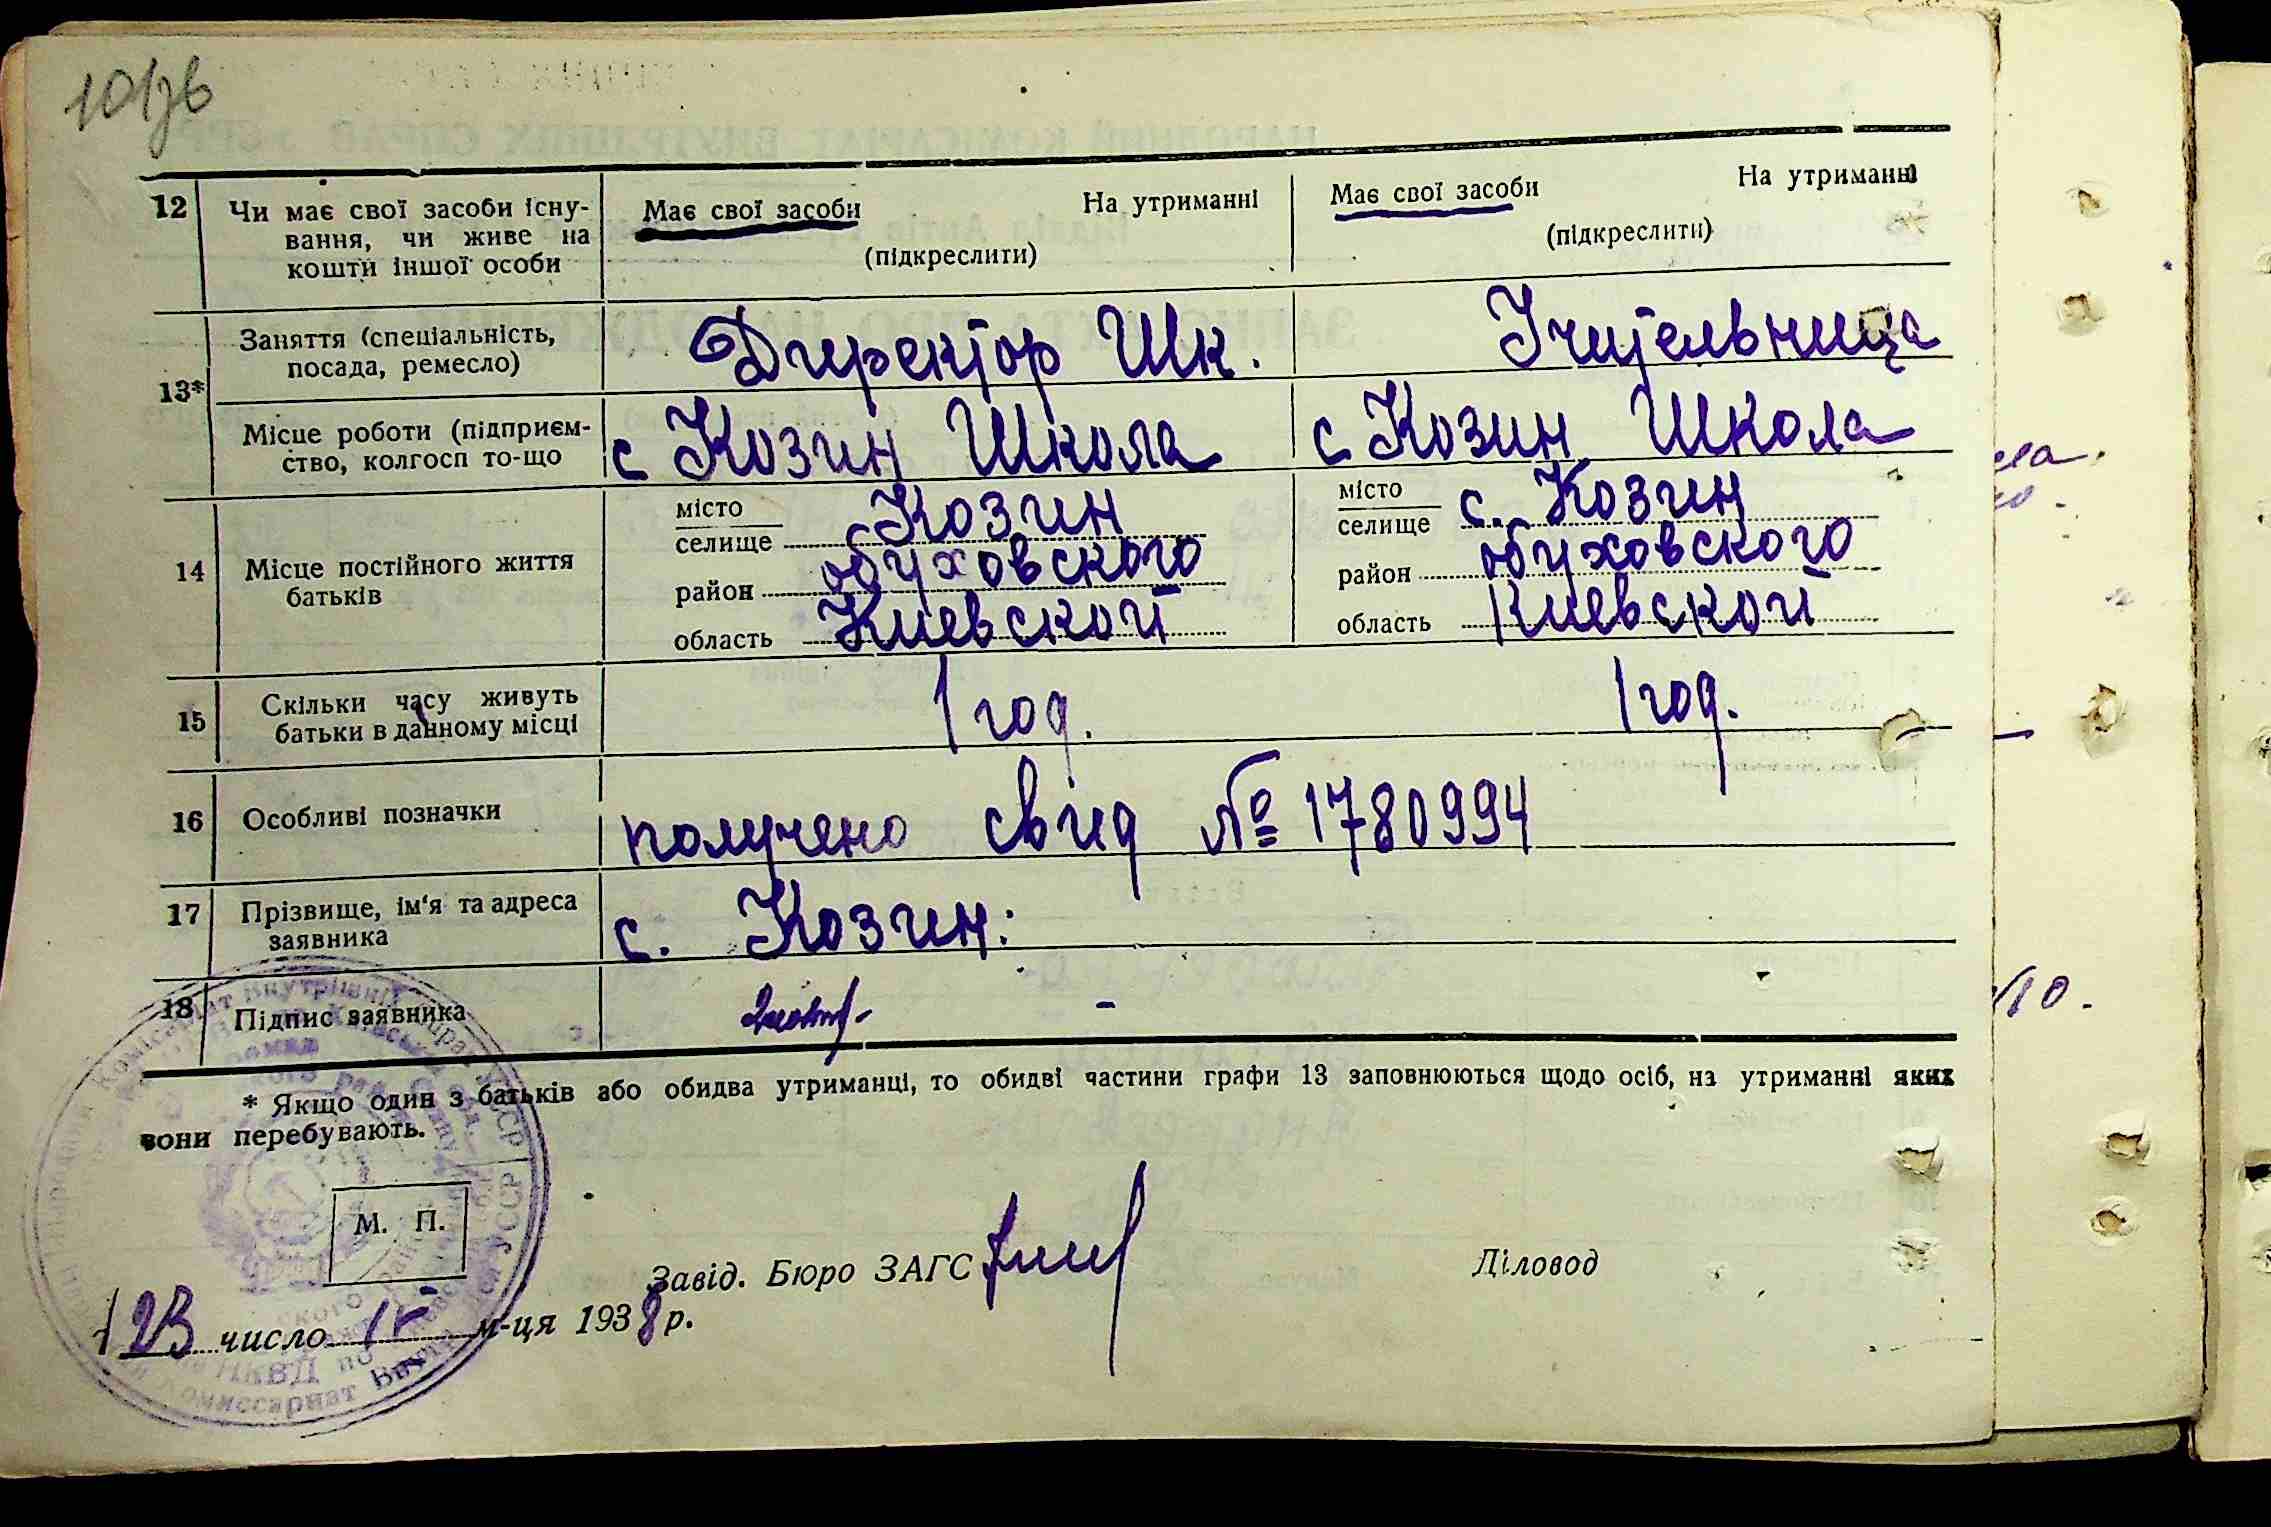 101зв
12 Чи має свої засоби існу- Має свої засоби На утриманні Має свої засоби На утриманні
вання, чи живе на (підкреслити) (підкреслити)
кошти іншої особи
13* Заняття (спеціальність, Директор Шк. Учительница
посада, ремесло)
Місце роботи (підприєм- с Козин Школа с Козин Школа
ство, колгосп то-що
14 Місце постійного життя батьків
місто
селище с Козин
район обуховского
область Киевской
місто
селище с. Козин
район обуховского
область Киевской
15 Скільки часу живуть 1 год. 1 год.
батьки в данному місці
16 Особливі позначки получено свид № 1780994
17 Прізвище, ім'я та адреса с. Козин:
заявника
18 Підпис заявника -
* Якщо один з батьків або обидва утриманці, то обидві частини графи 13 заповнюються щодо осіб, на утриманні яких
вони перебувають.
М. П.
Завід. Бюро ЗАГС Діловод
23 число м-ця 1938 р.